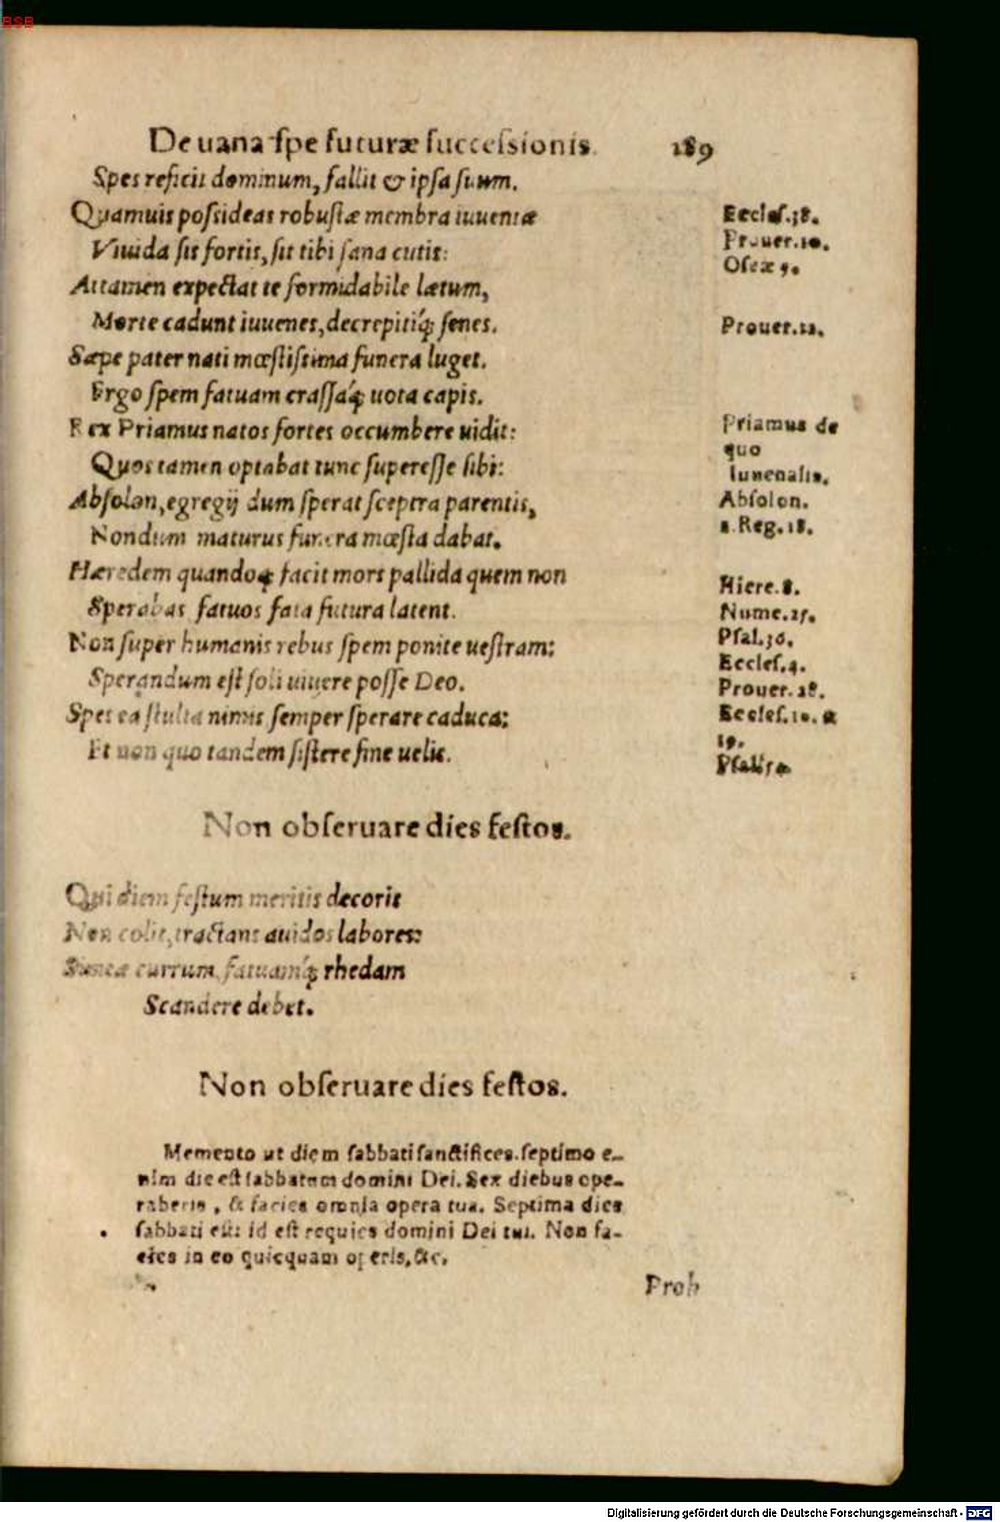 BSB
De uana spe futuræ successionis. 189
Spes reficit dominum, fallit & ipsa suum.
Quamuis possideas robustæ membra iuuentæ
Viuida sis fortis, sit tibi sana cutis:
Attamen expectat te formidabile lætum,
Morte cadunt iuuenes, decrepitiq́; senes.
Sæpe pater nati mœstissima funera luget.
Ergo spem fatuam crassaq́; uota capis.
Rex Priamus natos fortes occumbere uidit:
Quos tamen optabat tunc superesse sibi:
Absolon, egregij dum sperat sceptra parentis,
Nondum maturus funera mœsta dabat.
Hæredem quandoq; facit mors pallida quem non
Sperabas fatuos fata futura latent.
Non super humanis rebus spem ponite uestram:
Sperandum est soli uiuere posse Deo.
Spes ea stulta nimis semper sperare caduca:
Et non quo tandem sistere fine uelis.
Eccles.38.
Prouer.10.
Oseæ 9.
Prouer.11.
Priamus de
quo
Iuuenalis.
Absolon.
2.Reg.18.
Hiere.8.
Nume.25.
Psal.30.
Eccles.4.
Prouer.28.
Eccles.10. &
19.
Non obseruare dies festos.
Qui diem festum meritis decoris
Non colit, tractans auidos labores:
currum, fatuamq́; rhedam
Scandere debet.
Non obseruare dies festos.
Memento ut diem sabbati sanctifices. septimo e-
nim die est sabbatum domini Dei. Sex diebus ope-
raberis, & facies omnia opera tua. Septima dies
sabbati est: id est requies domini Dei tui. Non fa-
cies in eo quicquam operis, &c.
Proh
Digitalisierung gefördert durch die Deutsche Forschungsgemeinschaft - DFG